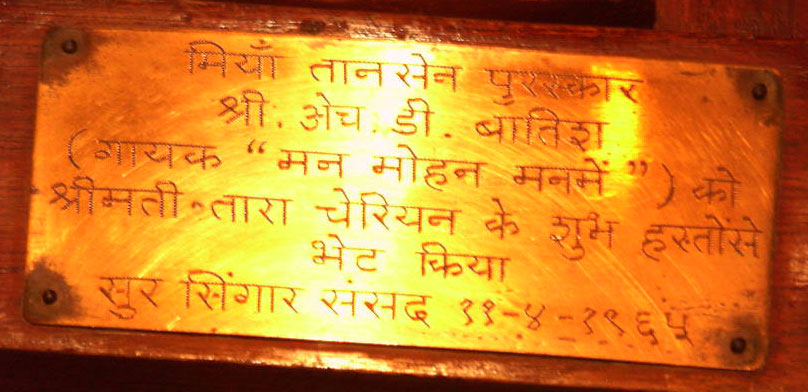 मियाँ तानसेन पुरस्कार
श्री. अेच. डी. बातिश
(गायक "मन मोहन मनमें") को
श्रीमती तारा चेरियन के शुभ हस्तोंसे
भेट किया
सुर सिंगार संसद ११-४-१९६५